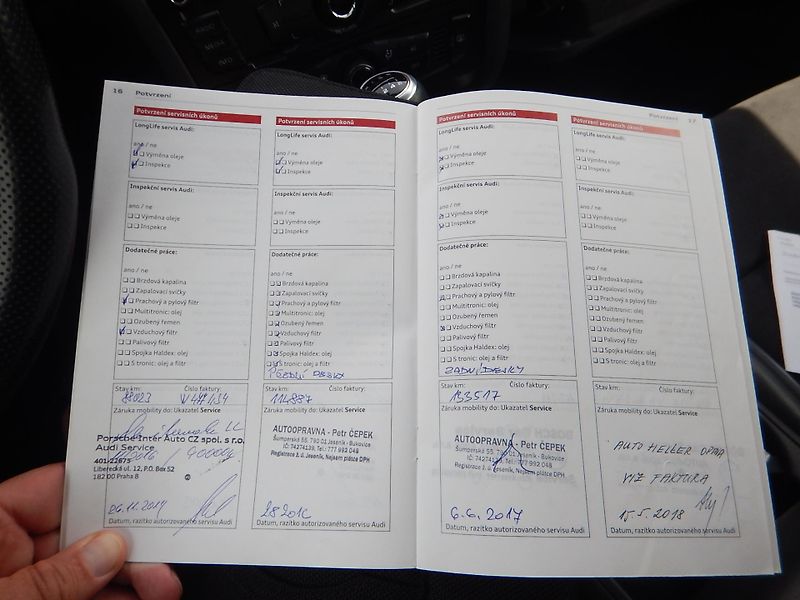 16 Potvrzení
Potvrzení servisních úkonů
LongLife servis Audi:
ano / ne
Výměna oleje
Inspekce
Inspekční servis Audi:
ano / ne
Výměna oleje
Inspekce
Dodatečné práce:
ano / ne
Brzdová kapalina
Zapalovací svíčky
Prachový a pylový filtr
Multitronic: olej
Ozubený řemen
Vzduchový filtr
Palivový filtr
Spojka Haldex: olej
S tronic: olej a filtr
Stav km: Číslo faktury:
Záruka mobility do: Ukazatel Service
Porsche Inter Auto CZ spol. s r.o.
Audi Service
401-22675
Liberecká ul. 12, P.O. Box 52
182 00 Praha 8
26.11.2014
Datum, razítko autorizovaného servisu Audi
Potvrzení servisních úkonů
LongLife servis Audi:
ano / ne
Výměna oleje
Inspekce
Inspekční servis Audi:
ano / ne
Výměna oleje
Inspekce
Dodatečné práce:
ano / ne
Brzdová kapalina
Zapalovací svíčky
Prachový a pylový filtr
Multitronic: olej
Ozubený řemen
Vzduchový filtr
Palivový filtr
Spojka Haldex: olej
S tronic: olej a filtr
Stav km: Číslo faktury:
114887
Záruka mobility do: Ukazatel Service
AUTOOPRAVNA - Petr ČEPEK
Šumperská 55, 790 01 Jeseník - Bukovice
IČ: 74274139, Tel.: 777 992 048
Registrace ž. ú. Jeseník, Nejsem plátce DPH
Datum, razítko autorizovaného servisu Audi
Potvrzení 17
Potvrzení servisních úkonů
LongLife servis Audi:
ano / ne
Výměna oleje
Inspekce
Inspekční servis Audi:
ano / ne
Výměna oleje
Inspekce
Dodatečné práce:
ano / ne
Brzdová kapalina
Zapalovací svíčky
Prachový a pylový filtr
Multitronic: olej
Ozubený řemen
Vzduchový filtr
Palivový filtr
Spojka Haldex: olej
S tronic: olej a filtr
Stav km: Číslo faktury:
Záruka mobility do: Ukazatel Service
AUTOOPRAVNA - Petr ČEPEK
Šumperská 55, 790 01 Jeseník - Bukovice
IČ: 74274139, Tel.: 777 992 048
Registrace ž. ú. Jeseník, Nejsem plátce DPH
6.6.2017
Datum, razítko autorizovaného servisu Audi
Potvrzení servisních úkonů
LongLife servis Audi:
ano / ne
Výměna oleje
Inspekce
Inspekční servis Audi:
ano / ne
Výměna oleje
Inspekce
Dodatečné práce:
ano / ne
Brzdová kapalina
Zapalovací svíčky
Prachový a pylový filtr
Multitronic: olej
Ozubený řemen
Vzduchový filtr
Palivový filtr
Spojka Haldex: olej
S tronic: olej a filtr
Stav km: Číslo faktury:
Záruka mobility do: Ukazatel Service
AUTO HELLER OPAVA
VIZ FAKTURA
15.5.2018
Datum, razítko autorizovaného servisu Audi